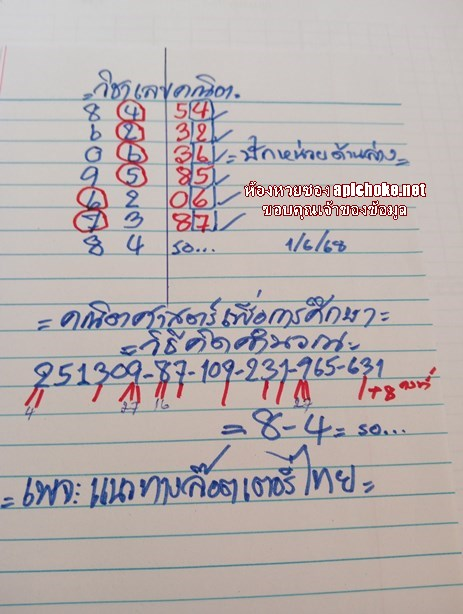 = วิชาเลขคณิต.
8 4 54 ✓
6 2 32 ✓
0 6 36 ✓ = ปักหน่วยด้านล่าง =
9 5 85 ✓
6 2 06 ✓
7 3 87 ✓
8 4 รอ... 1/6/68
ห้องหวยของ apichoke.net
ขอบคุณเจ้าของข้อมูล
= คณิตศาสตร์เพื่อการศึกษา =
= วิธีคิดคำนวณ =
251309-87-109-231-965-631
4 27 16 27 +8 คงที่
= 8-4 = รอ...
= เพจ: แนวทางล๊อตเตอรี่ไทย =